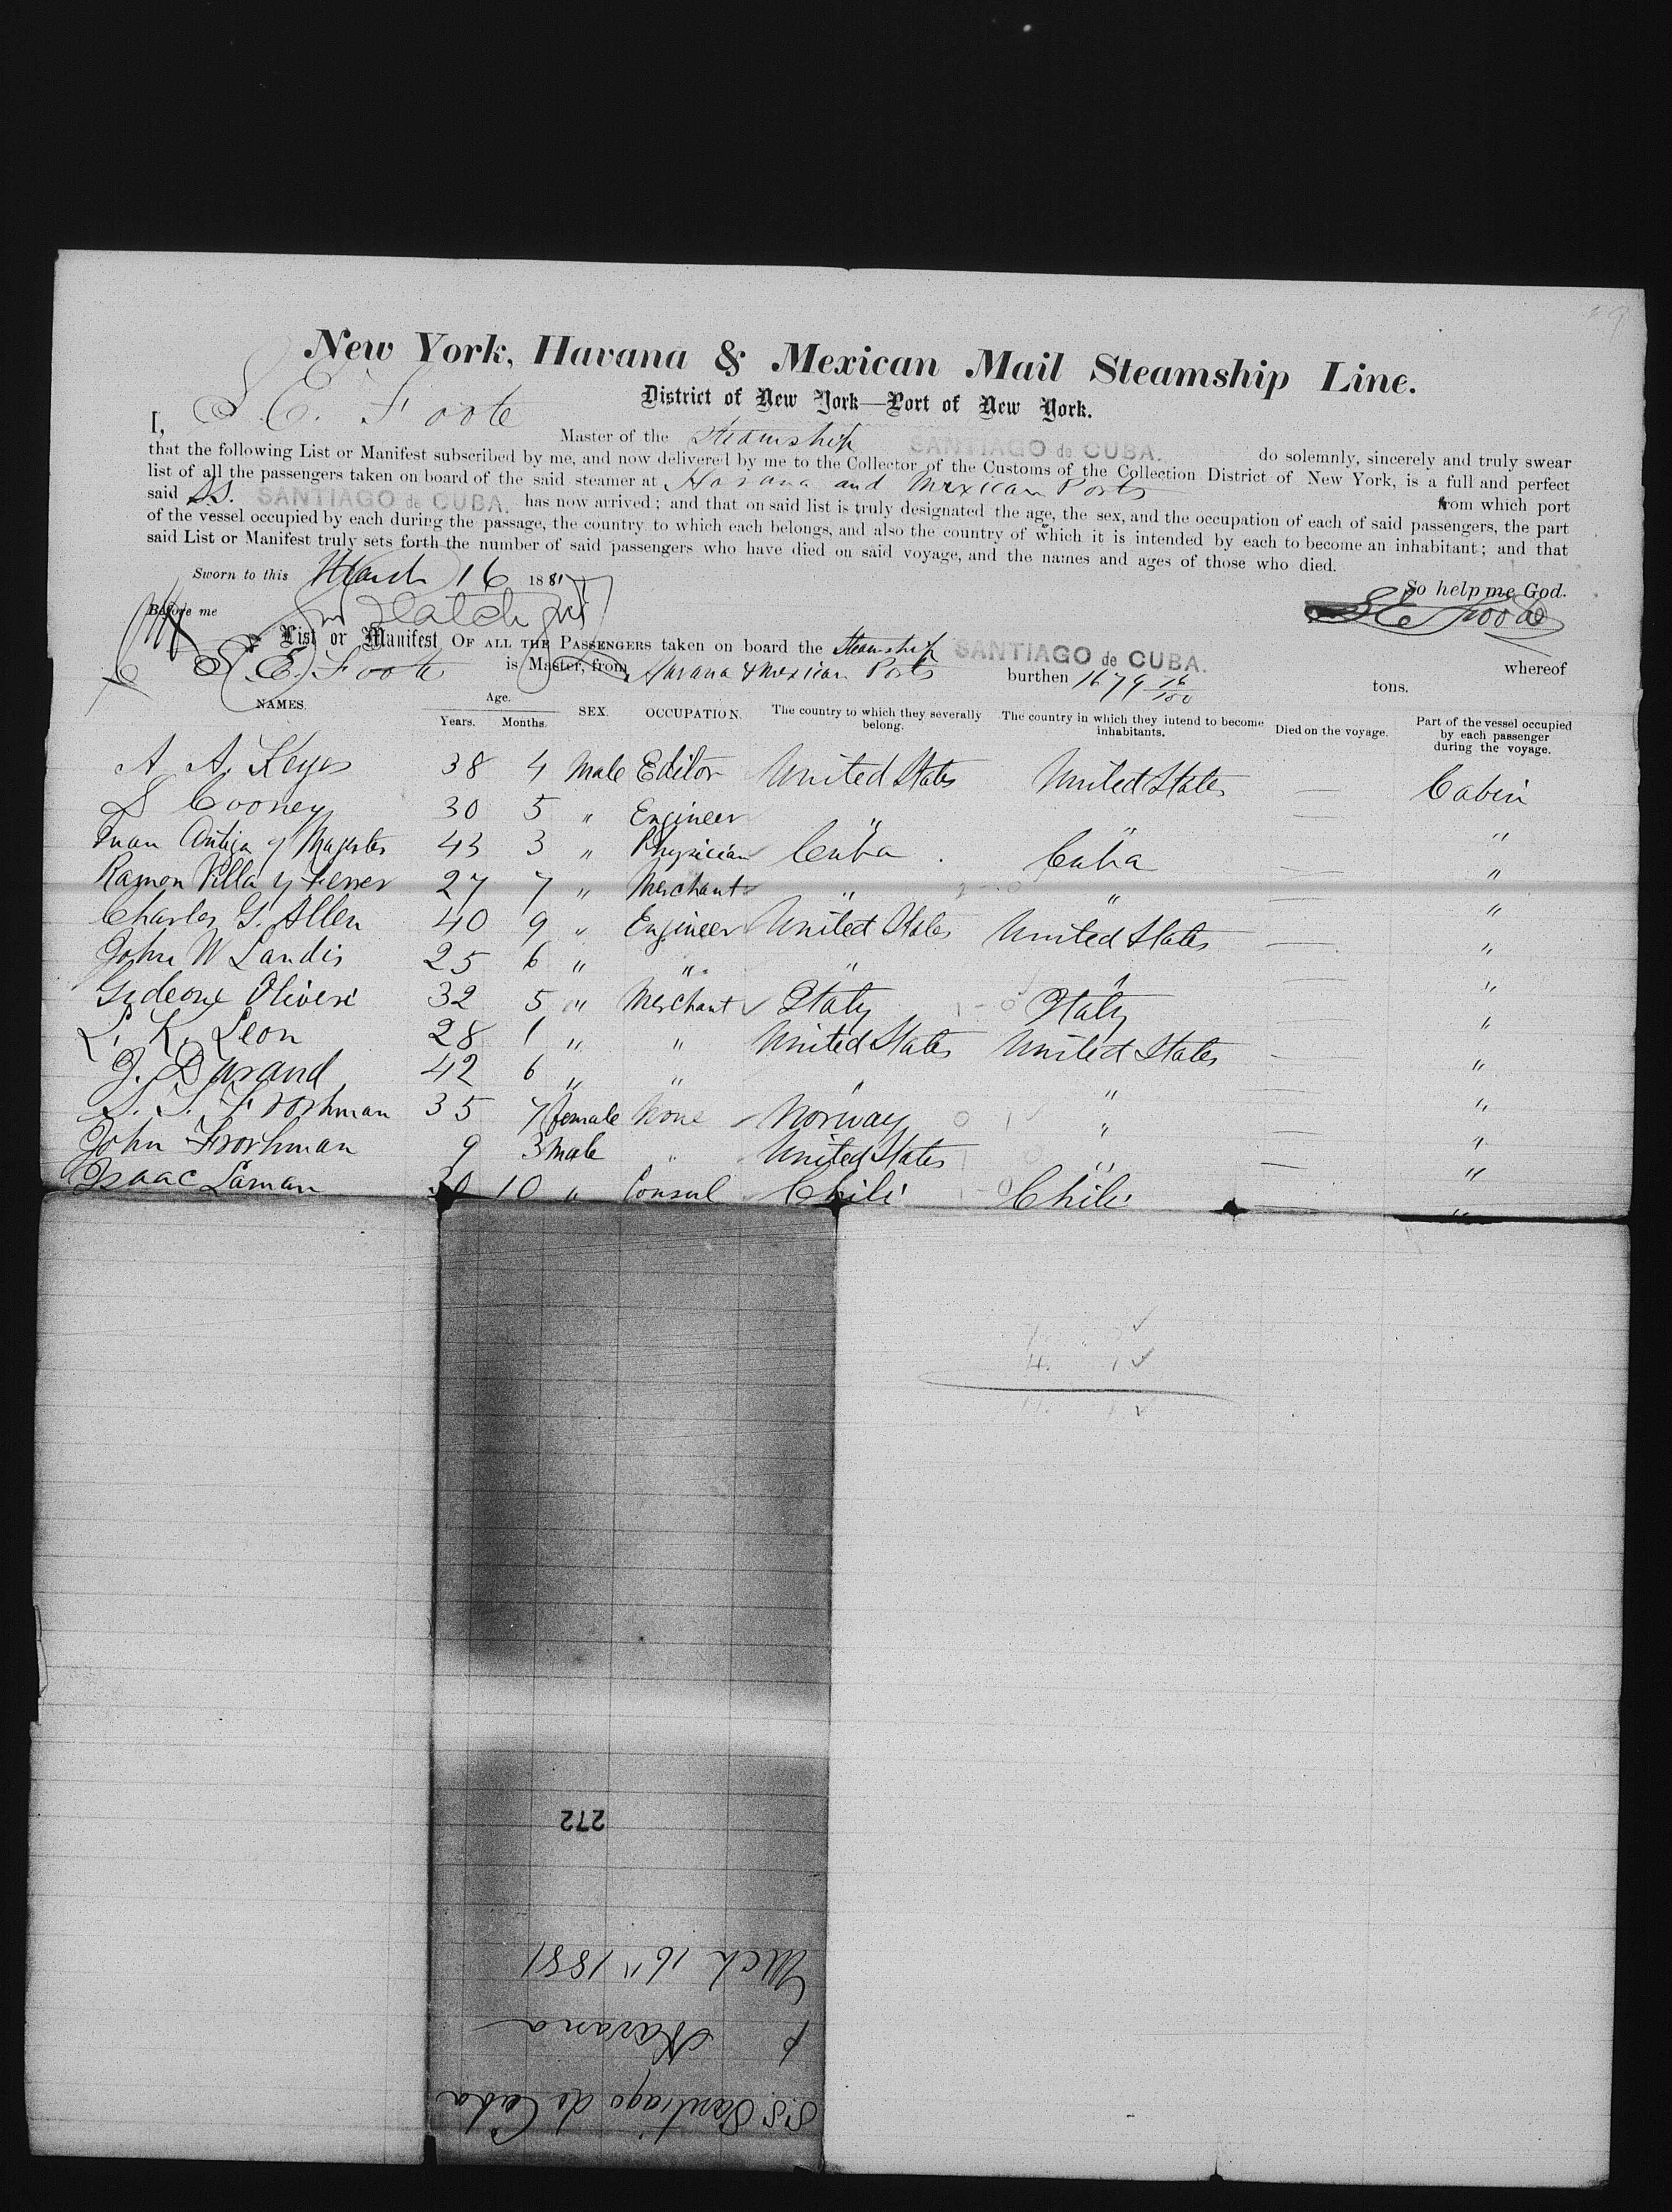 New York, Havana & Mexican Mail Steamship Line.
District of New York—Port of New York.
I, S. E. Foote Master of the Steamship SANTIAGO de CUBA. do solemnly, sincerely and truly swear
that the following List or Manifest subscribed by me, and now delivered by me to the Collector of the Customs of the Collection District of New York, is a full and perfect
list of all the passengers taken on board of the said steamer at Havana and Mexican Ports from which port
said SS. SANTIAGO de CUBA. has now arrived; and that on said list is truly designated the age, the sex, and the occupation of each of said passengers, the part
of the vessel occupied by each during the passage, the country to which each belongs, and also the country of which it is intended by each to become an inhabitant; and that
said List or Manifest truly sets forth the number of said passengers who have died on said voyage, and the names and ages of those who died.
So help me God.
Sworn to this March 16 1881
S E Foote
Before me
List or Manifest OF ALL THE PASSENGERS taken on board the Steamship SANTIAGO de CUBA. whereof
S. E. Foote is Master, from Havana & Mexican Ports burthen 1679 16/100 tons.
NAMES. Age. Years. Months. SEX. OCCUPATION. The country to which they severally belong. The country in which they intend to become inhabitants. Died on the voyage. Part of the vessel occupied by each passenger during the voyage.
A. A. Keyes 38 4 Male Editor United States United States — Cabin
S Cooney 30 5 " Engineer " " — "
Juan Antiga y 43 3 " Physician Cuba Cuba — "
Ramon Villa y Ferrer 27 7 " Merchant " " — "
Charles G. Allen 40 9 " Engineer United States United States — "
John W Landis 25 6 " " " " — "
Gideone Oliveri 32 5 " Merchant Italy Italy — "
L. K. Leon 28 1 " " United States United States — "
J. Durand 42 6 " " " " — "
S. S. Frorhman 35 7 female None Norway " — "
John Frorhman 9 3 male " United States " — "
Isaac Laman 30 10 " Consul Chili Chili — "
272
Mch 16" 1881
Havana
S.S. Santiago de Cuba